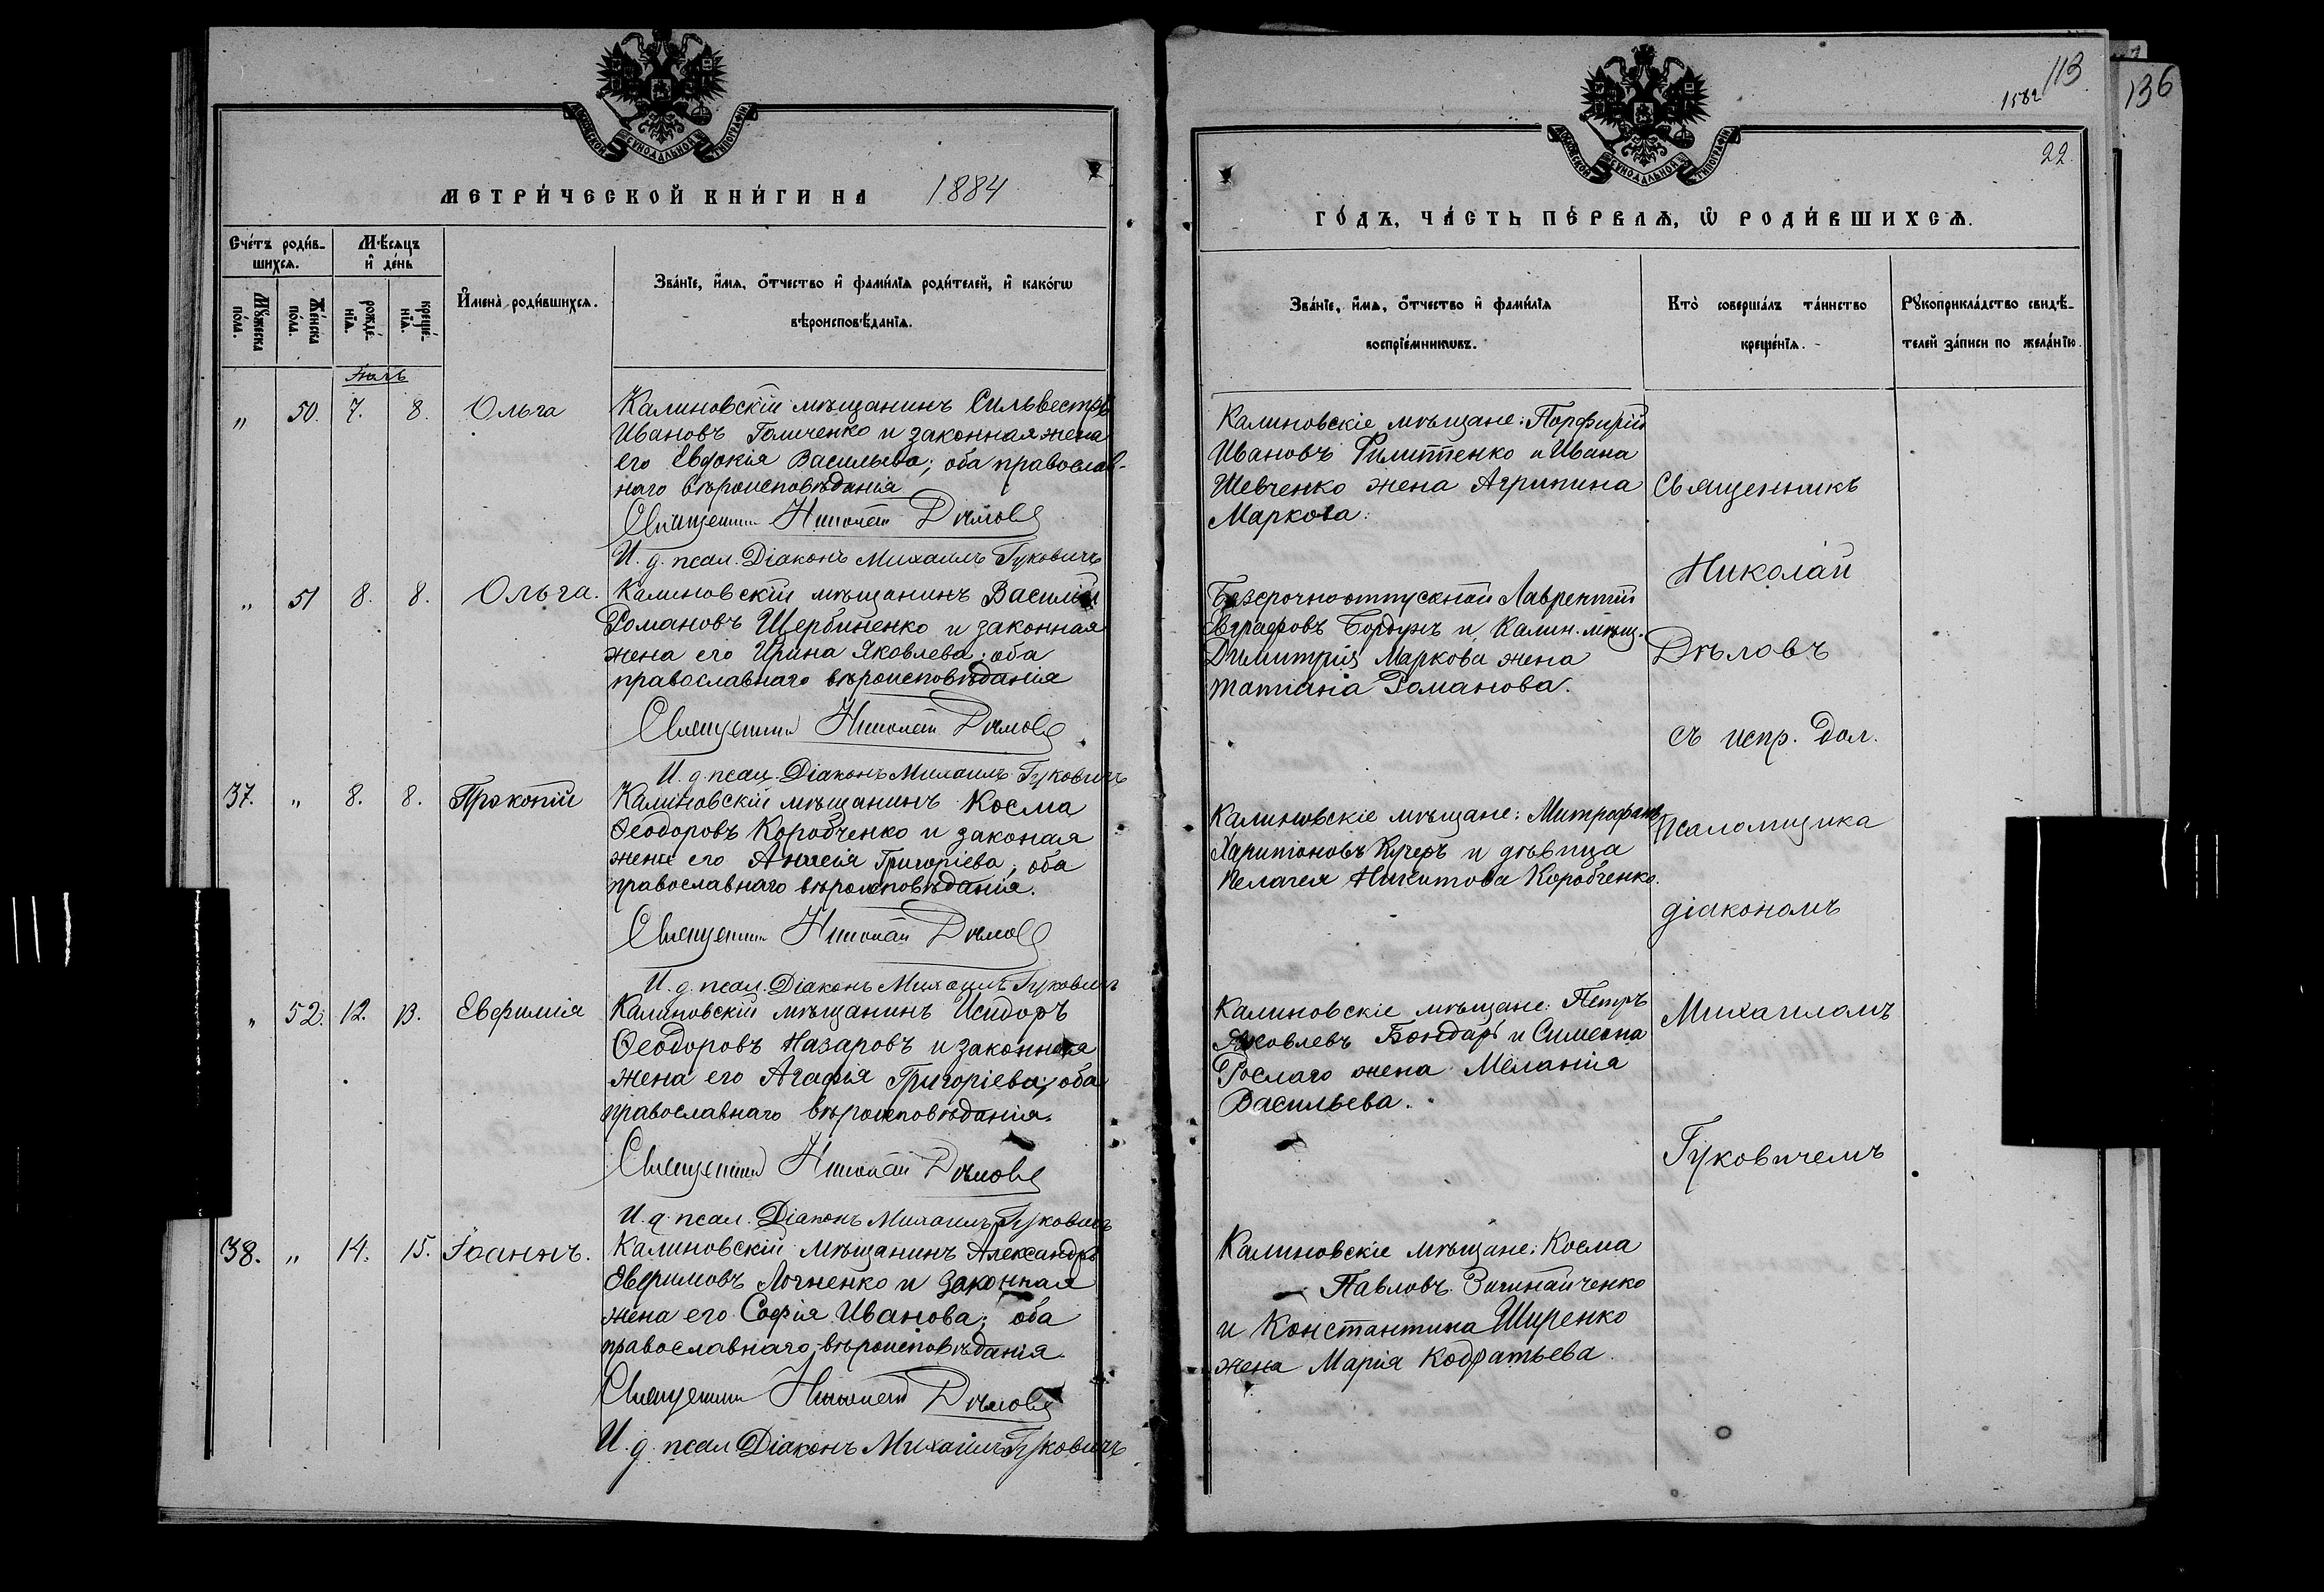 МОСКОВСКОЙ СѴНОДАЛЬНОЙ ТИПОГРАФІИ
МЕТРИ́ЧЕСКОЙ КНИ́ГИ НА 1884
Сче́тъ роди́в-
шихсѧ.
Мѣ́сѧцъ
и҆ де́нь
Мꙋ́жеска
по́ла.
Же́нска
по́ла.
рожде́-
нїѧ.
креще́-
нїѧ.
И҆мена̀ роди́вшихсѧ.
Зва́нїе, и҆́мѧ, ѻ҆́тчество и҆ фами́лїѧ роди́телей, и҆ како́гѡ
вѣроисповѣ́данїѧ.
„ 50. 7. 8. Ольга
Калиновскій мѣщанинъ Сильвестръ
Ивановъ Голиченко и законная жена
его Евдокія Васильева; оба православ-
наго вѣроисповѣданія
Священник Николай Дѣловъ
И. д. псал. Діаконъ Михаилъ Гуковичъ
„ 51 8. 8. Ольга.
Калиновскій мѣщанинъ Василій
Романовъ Щербиненко и законная
жена его Ирина Яковлева; оба
православнаго вѣроисповѣданія
Священник Николай Дѣловъ
И. д. псал. Діаконъ Михаилъ Гуковичъ
37. „ 8. 8. Прокопій
Калиновскій мѣщанинъ Косма
Ѳеодоровъ Коробченко и законая
жена его Анисія Григоріева; оба
православнаго вѣроисповѣданія.
Священник Николай Дѣловъ
И. д. псал. Діаконъ Михаилъ Гуковичъ
„ 52. 12. 13. Евфимія
Калиновскій мѣщанинъ Исидоръ
Ѳеодоровъ Назаровъ и законная
жена его Агафія Григоріева; оба
православнаго вѣроисповѣданія.
Священник Николай Дѣловъ
И. д. псал. Діаконъ Михаилъ Гуковичъ
38. „ 14. 15. Іоаннъ.
Калиновскій мѣщанинъ Александръ
Евфимовъ Логненко и законная
жена его Софія Иванова; оба
православнаго вѣроисповѣданія.
Священник Николай Дѣловъ
И. д. псал Діаконъ Михаилъ Гуковичъ
113
1582
136
22.
МОСКОВСКОЙ СѴНОДАЛЬНОЙ ТИПОГРАФІИ
ГО́ДЪ, ЧА́СТЬ ПЕ́РВАѦ, Ѡ҆ РОДИ́ВШИХСѦ.
Зва́нїе, и҆́мѧ, ѻ҆́тчество и҆ фами́лїѧ
воспрїе́мникѡвъ.
Кто̀ соверша́лъ та́инство
креще́нїѧ.
Рꙋкоприкла́дство свидѣ́-
телей за́писи по жела́нїю.
Калиновскіе мѣщане: Порфирій
Ивановъ Филиппенко и Ивана
Шевченко жена Агрипина
Маркова.
Безсрочноотпускной Лаврентій
Евграфовъ Бордунъ и Калин. мѣщ.
Димитрія Маркова жена
Татіана Романова.
Калиновскіе мѣщане: Митрофанъ
Харитоновъ Кучеръ и дѣвица
Пелагея Никитова Коробченко.
Калиновскіе мѣщане: Петръ
Яковлевъ Бондарь и Симеона
Рослаго жена Меланія
Васильева.
Калиновскіе мѣщане: Косма
Павловъ
и Константина Ширенко
жена Марія Кодратьева.
Священникъ
Николай
Дѣловъ
съ испр. дол.
псаломщика
діакономъ
Михаиломъ
Гуковичемъ